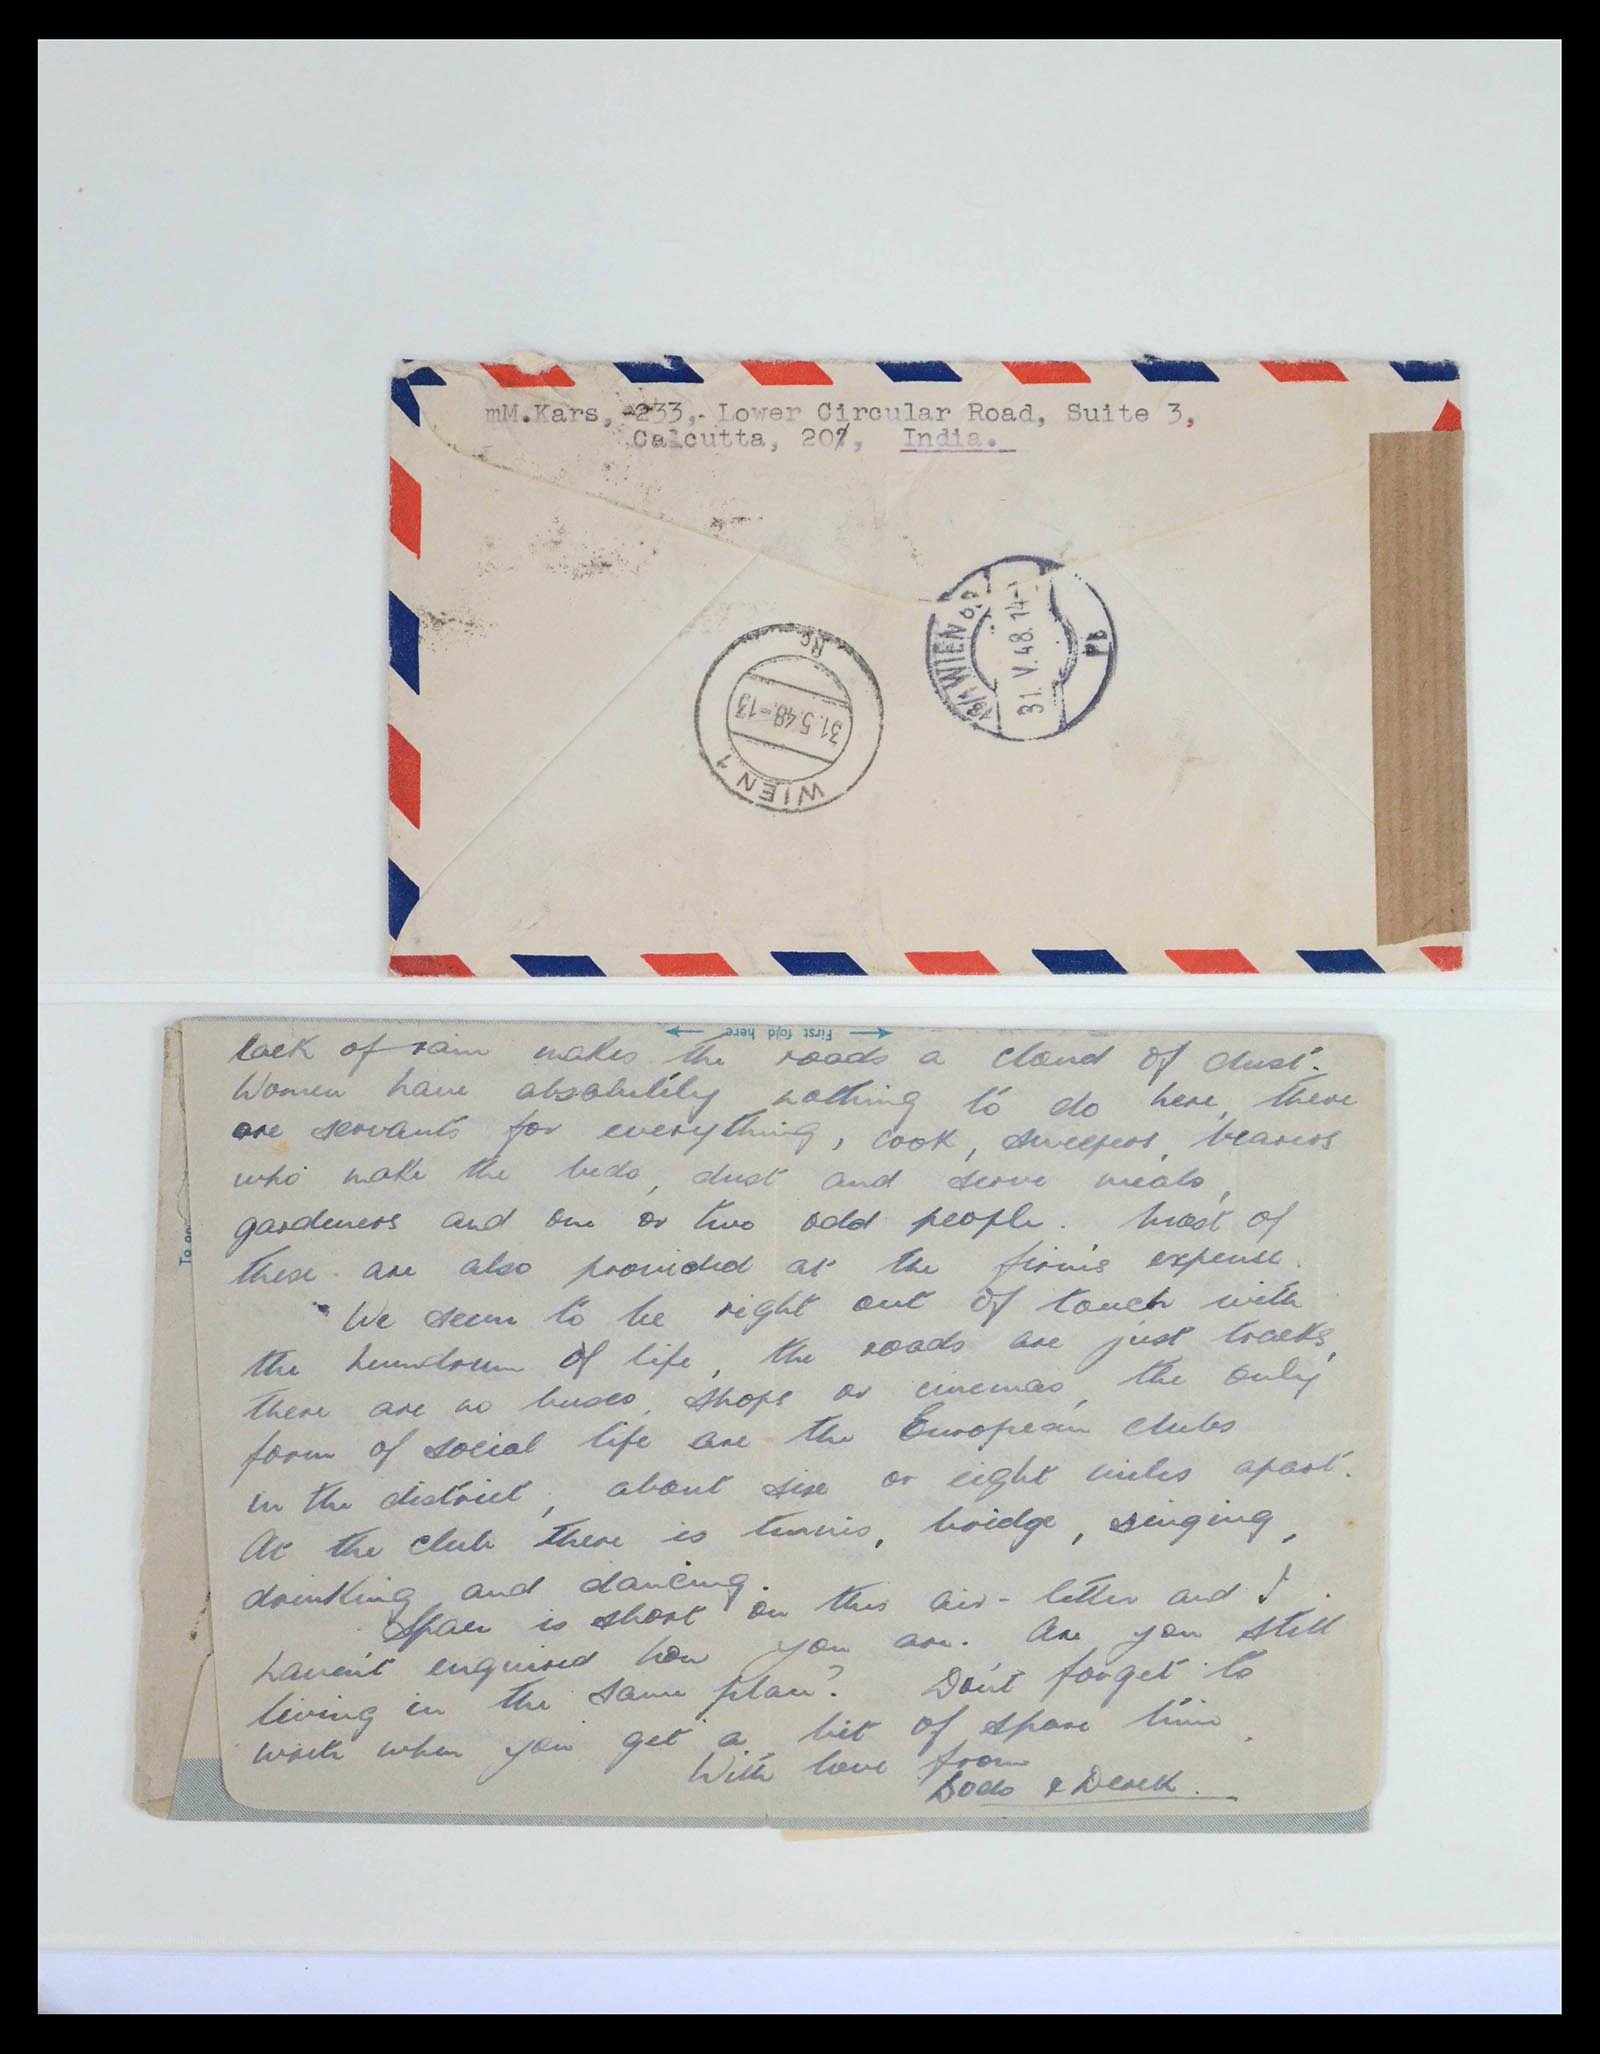 mM.Kars, 233,- Lower Circular Road, Suite 3,
Calcutta, 20%, India.
18/1 WIEN
31. V. 48. 14-
Pb
WIEN 1
31.5.48.-13
First fold here
To op
lack of rain makes the roads a cloud of dust.
Women have absolutely nothing to do here, there
are servants for everything, cook, sweepers, bearers
who make the beds, dust and serve meals,
gardeners and one or two odd people. Most of
these are also provided at the firm's expense.
We seem to be right out of touch with
the humdrum of life, the roads are just tracks,
there are no buses, shops or cinemas, the only
form of social life are the European clubs
in the district, about six or eight miles apart.
At the club there is tennis, bridge, singing,
drinking and dancing.
Space is short on this air-letter and I
haven't enquired how you are. Are you still
living in the same place? Don't forget to
write when you get a bit of spare time.
With love from
Dodo & Derek.